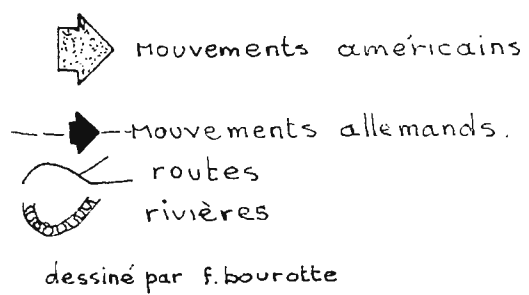 Mouvements américains
Mouvements allemands.
routes
rivières
dessiné par f. bourotte